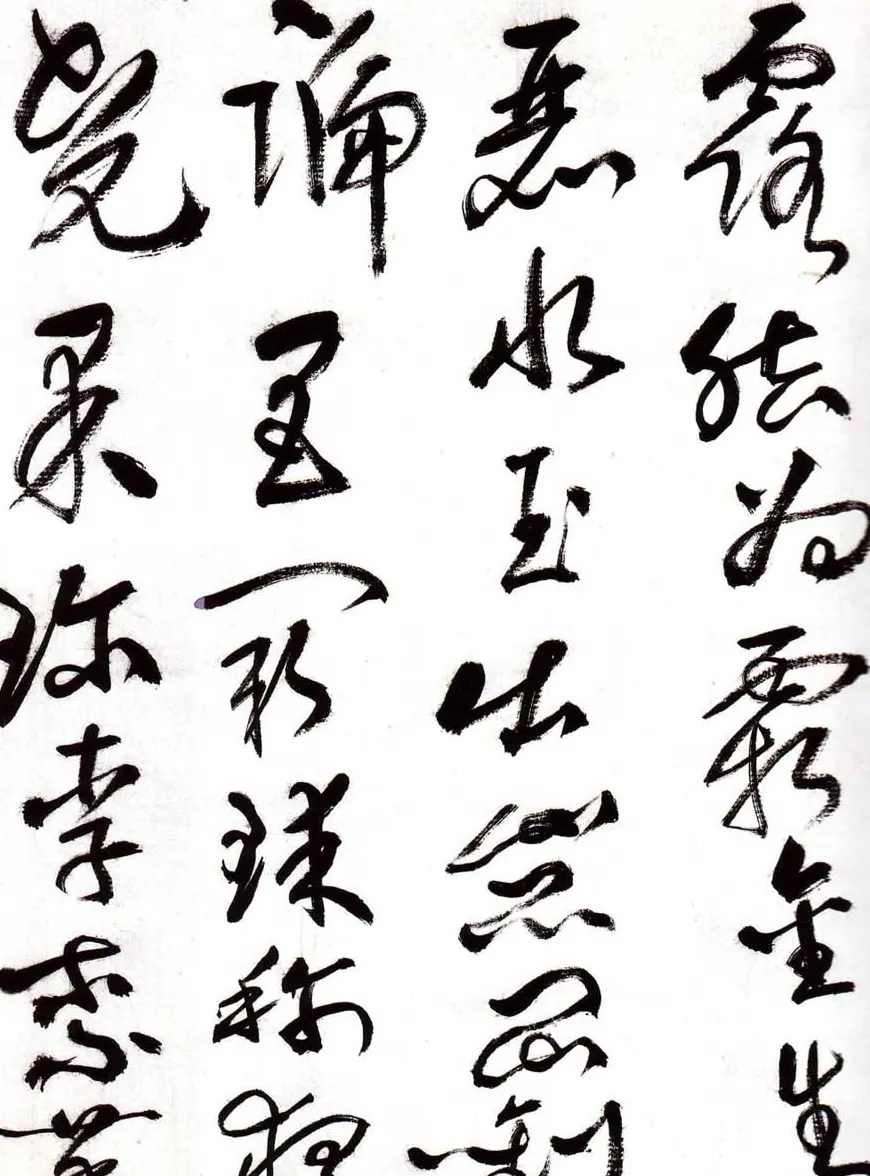 露結為霜金生
麗水玉出崑岡劍
號巨闕珠稱夜
光果珍李柰菜